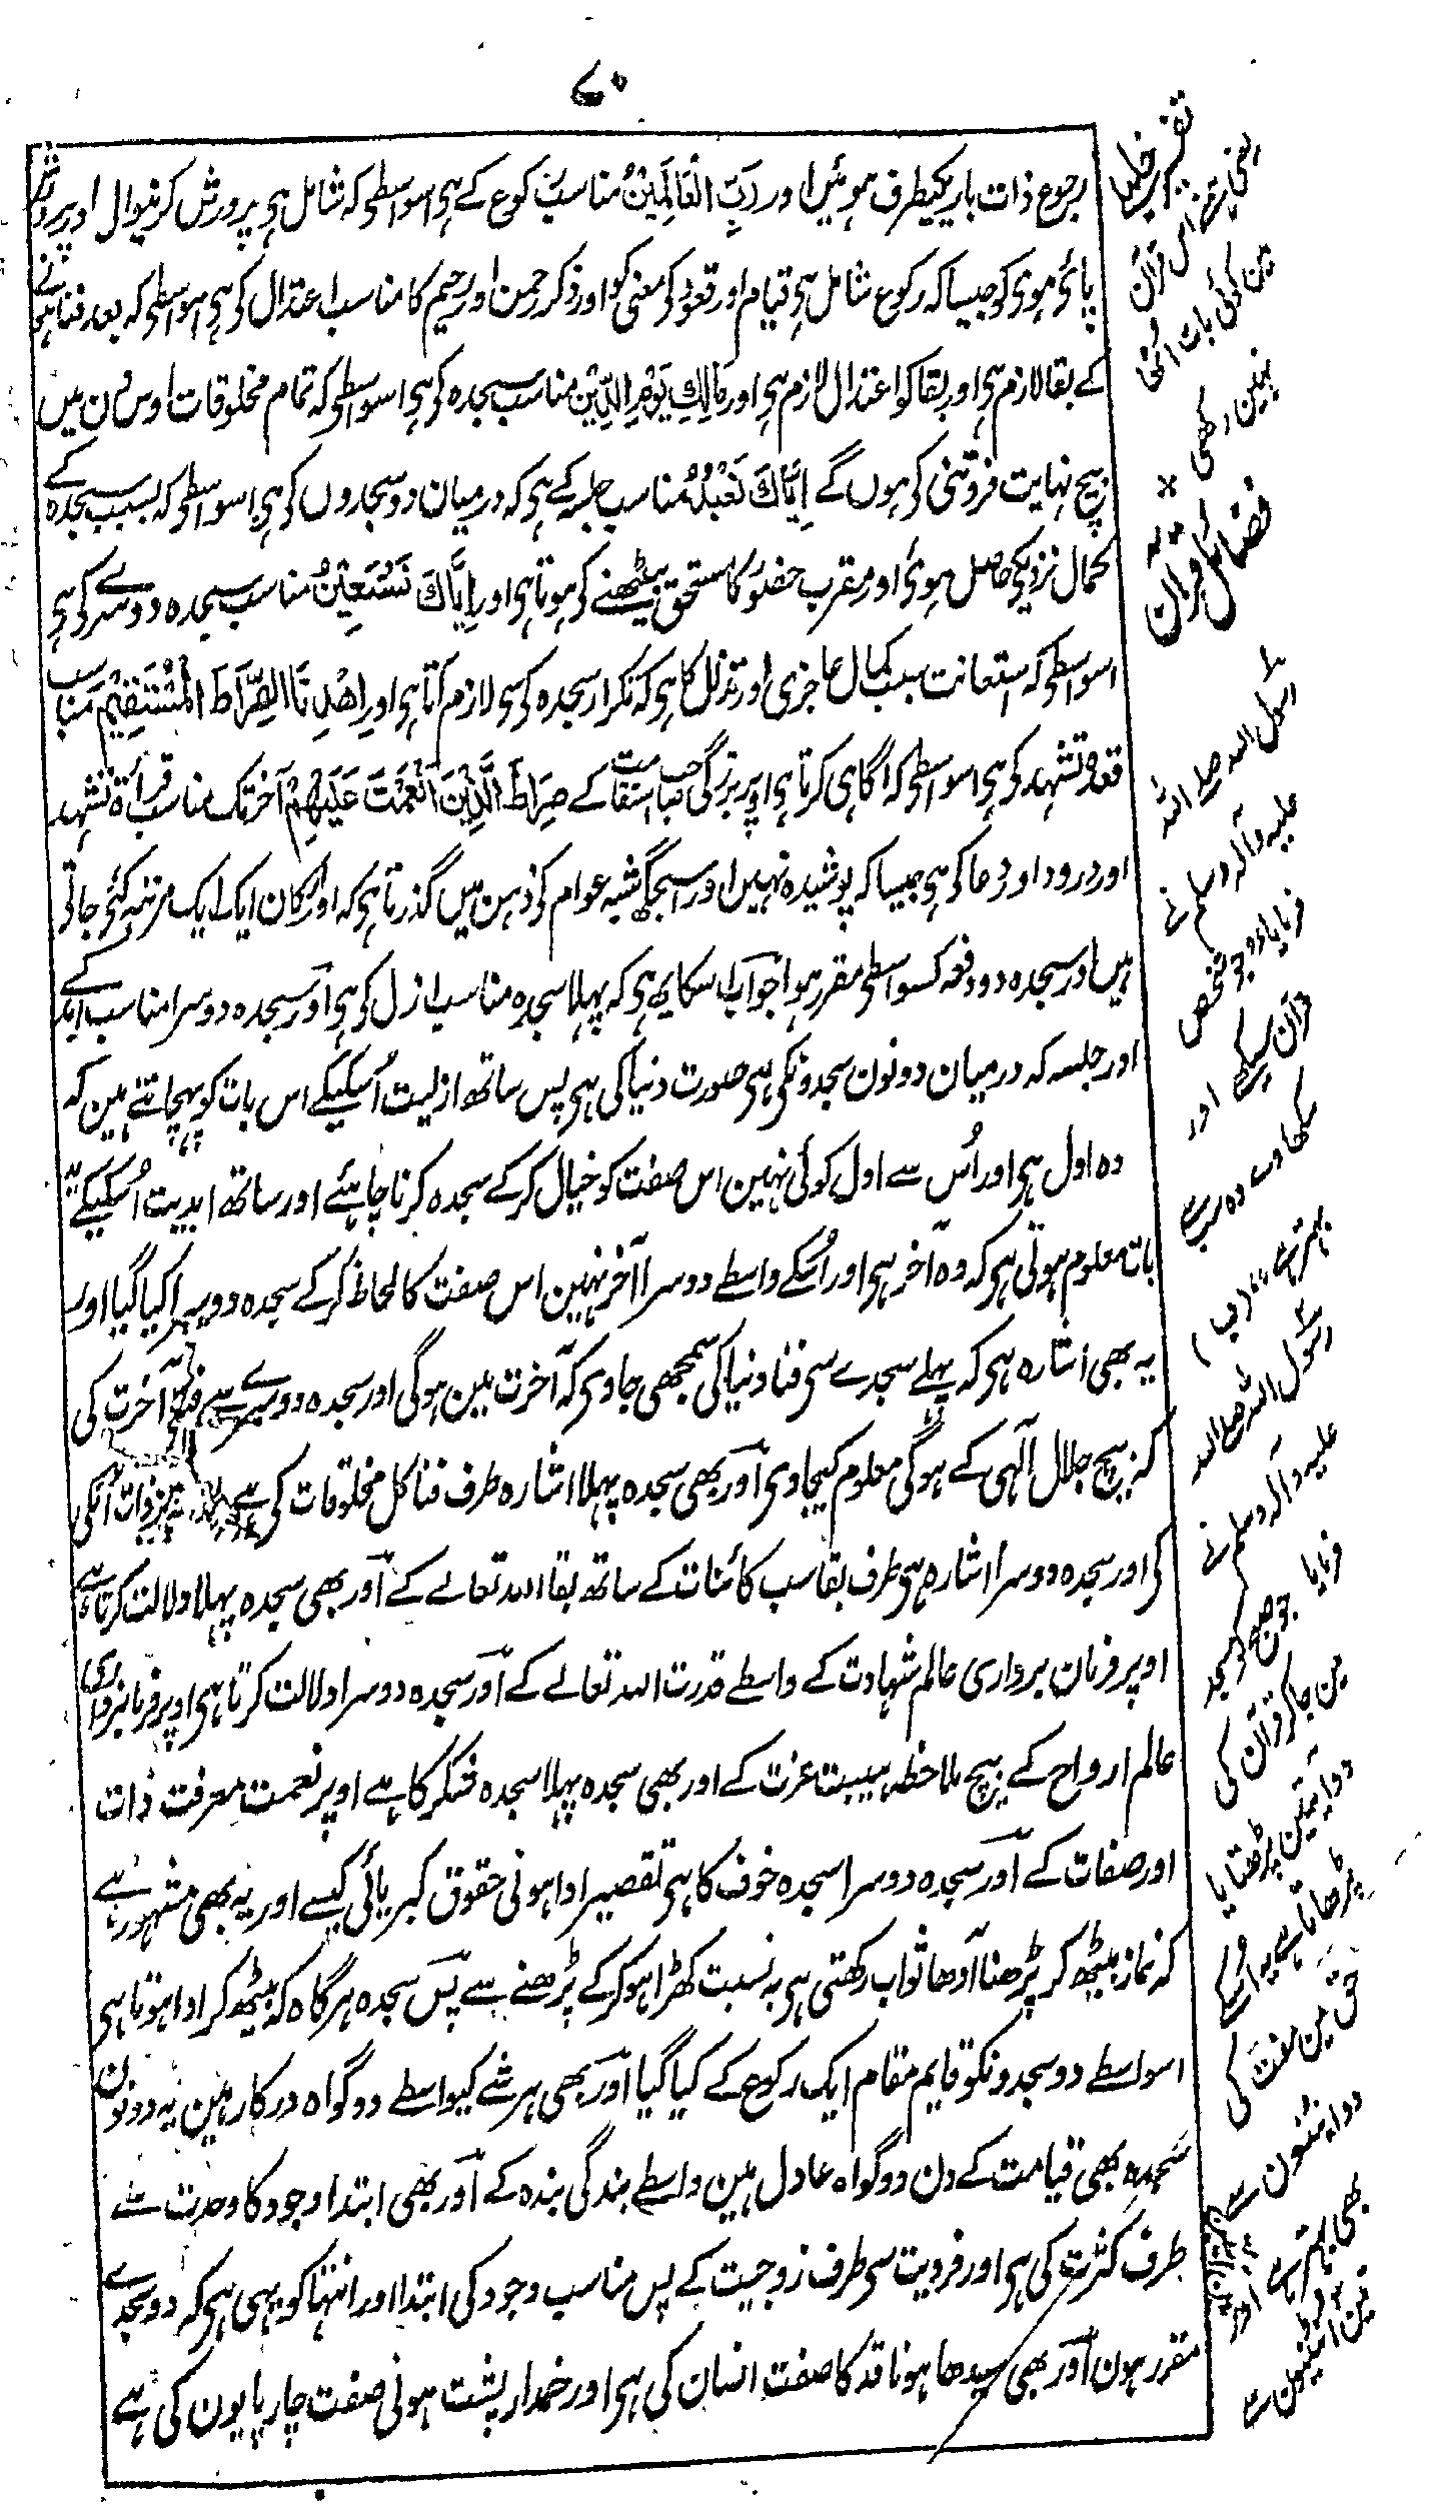 ۷۰
رجوع ذات باریکیطرف ہوئیں اور رَبِّ الْعَالَمِیْنْ مناسب رکوع کے ہی اسواسطی کہ شامل ہی پرورش کرنیوال اور پرورش
پائی ہوئی کو جیسا کہ رکوع شامل ہی قیام اور قعود کی معنی کو اور ذکر رحمن اور رحیم کا مناسب اعتدال کی ہی اسواسطی کہ بعد فنا ہونے
کے بقا لازم ہی اور بقا کو اعتدال لازم ہی اور مَالِكِ یَوْمِ الدِّیْنْ مناسب سجدہ کی ہی اسواسطی کہ تمام مخلوقات اوس دن میں
بیچ نہایت فروتنی کی ہوں گے اِیَّاكَ نَعْبُدُ مناسب جلسہ کے ہی کہ درمیان دو سجدوں کی ہی اسواسطی کہ بسبب سجدہ کے
کمال نزدیکی حاصل ہوئی اور مقرب حضور کا مستحق بیٹھنے کی ہوتا ہی اور اِیَّاكَ نَسْتَعِیْنُ مناسب سجدہ دوسرے کی ہی
اسواسطی کہ استعانت بسبب کمال عاجزی اور تذلل کا ہی کہ تکرار سجدہ کی سی لازم آتا ہی اور اِهْدِنَا الصِّرَاطَ الْمُسْتَقِیْمَ مناسب
قعدہ تشہد کی ہی اسواسطی کہ آگاہی کرتا ہی اوپر بزرگی صاحب استقامت کے صِرَاطَ الَّذِیْنَ اَنْعَمْتَ عَلَیْهِمْ آخر تک مناسب قرأۃ تشہد
اور درود اور دعا کی ہی جیسا کہ پوشیدہ نہیں اور اسجگہ شبہ عوام کی ذہن میں گذرتا ہی کہ اور ارکان ایک ایک مرتبہ کئی جاتی
ہیں اور سجدہ دو دفعہ کسواسطی مقرر ہوا جواب اسکا یہ ہی کہ پہلا سجدہ مناسب ازل کی ہی اور سجدہ دوسرا مناسب ابد کے
اور جلسہ کہ درمیان دونون سجدونکی ہی صورت دنیا کی ہی پس ساتھ ازلیت اُسکیکے اس بات کو پہچانتے ہین کہ
وہ اول ہی اور اُس سے اول کوئی نہین اس صفت کو خیال کرکے سجدہ کرنا چاہئے اور ساتھ ابدیت اُسکیکے یہ
بات معلوم ہوتی ہی کہ وہ آخر ہی اور اُسکے واسطے دوسرا آخر نہین اس صفت کا لحاظ کرکے سجدہ دوہرا کیا گیا اور
یہ بھی اشارہ ہی کہ پہلے سجدے سی فنا دنیا کی سمجھی جاوی کہ آخرت مین ہوگی اور سجدہ دوسرے سے فنا آخرت کی
کہ بیچ جلال الٰہی کے ہوگی معلوم کیجاوی اور بھی سجدہ پہلا اشارہ طرف فنا کل مخلوقات کی ہے ذات اُسکی
کی اور سجدہ دوسرا اشارہ ہی طرف بقا سب کائنات کے ساتھ بقا اللہ تعالے کے اور بھی سجدہ پہلا دلالت کرتا ہے
اوپر فرمان برداری عالم شہادت کے واسطے قدرت اللہ تعالے کے اور سجدہ دوسرا دلالت کرتا ہی اوپر فرمانبرداری
عالم ارواح کے بیچ ملاحظہ ہیبت عزت کے اور بھی سجدہ پہلا سجدہ شکر کا ہے اوپر نعمت معرفت ذات
اور صفات کے اور سجدہ دوسرا سجدہ خوف کا ہی تقصیر ادا ہونی حقوق کبریائی کیسے اور یہ بھی مشہور ہے
کہ نماز بیٹھ کر پڑھنا آدھا ثواب رکھتی ہی بہ نسبت کھڑا ہو کر کے پڑھنے سے پس سجدہ ہرگاہ کہ بیٹھ کر ادا ہوتا ہی
اسواسطے دو سجدونکو قایم مقام ایک رکوع کے کیا گیا اور بھی ہر شے کیواسطے دو گواہ درکار ہین یہ دونون
سجدہ بھی قیامت کے دن دو گواہ عادل ہین واسطے بندگی بندہ کے اور بھی ابتدا وجود کا وحدت سے
طرف کثرت کی ہی اور فردیت سی طرف زوجیت کے پس مناسب وجود کی ابتدا اور انتہا کو یہی ہی کہ دو سجدے
مقرر ہون اور بھی سیدھا ہونا قد کا صفت انسان کی ہی اور خمدار پشت ہونی صفت چارپایون کی ہے
تقریر خطا
یعنی
قرآن
مین کوئی بات اُٹھا
نہین رکھی
فضائل قرآن
رسول اللہ صلے اللہ
علیہ وآلہ وسلم نے
فرمایا جو شخص
قرآن سیکھے اور
سکھاوے وہ سب سے
بہتر ہے (ب)
رسول اللہ صلے اللہ
علیہ وآلہ وسلم نے
فرمایا جو صبح کو مسجد
مین جا کر قرآن کی
دو آیتین پڑھتا یا
پڑھاتا ہے یہ اسکے
حق مین مفت کی
دو اونٹنیون سے
بھی بہتر ہے اور
تین اونٹنیون سے